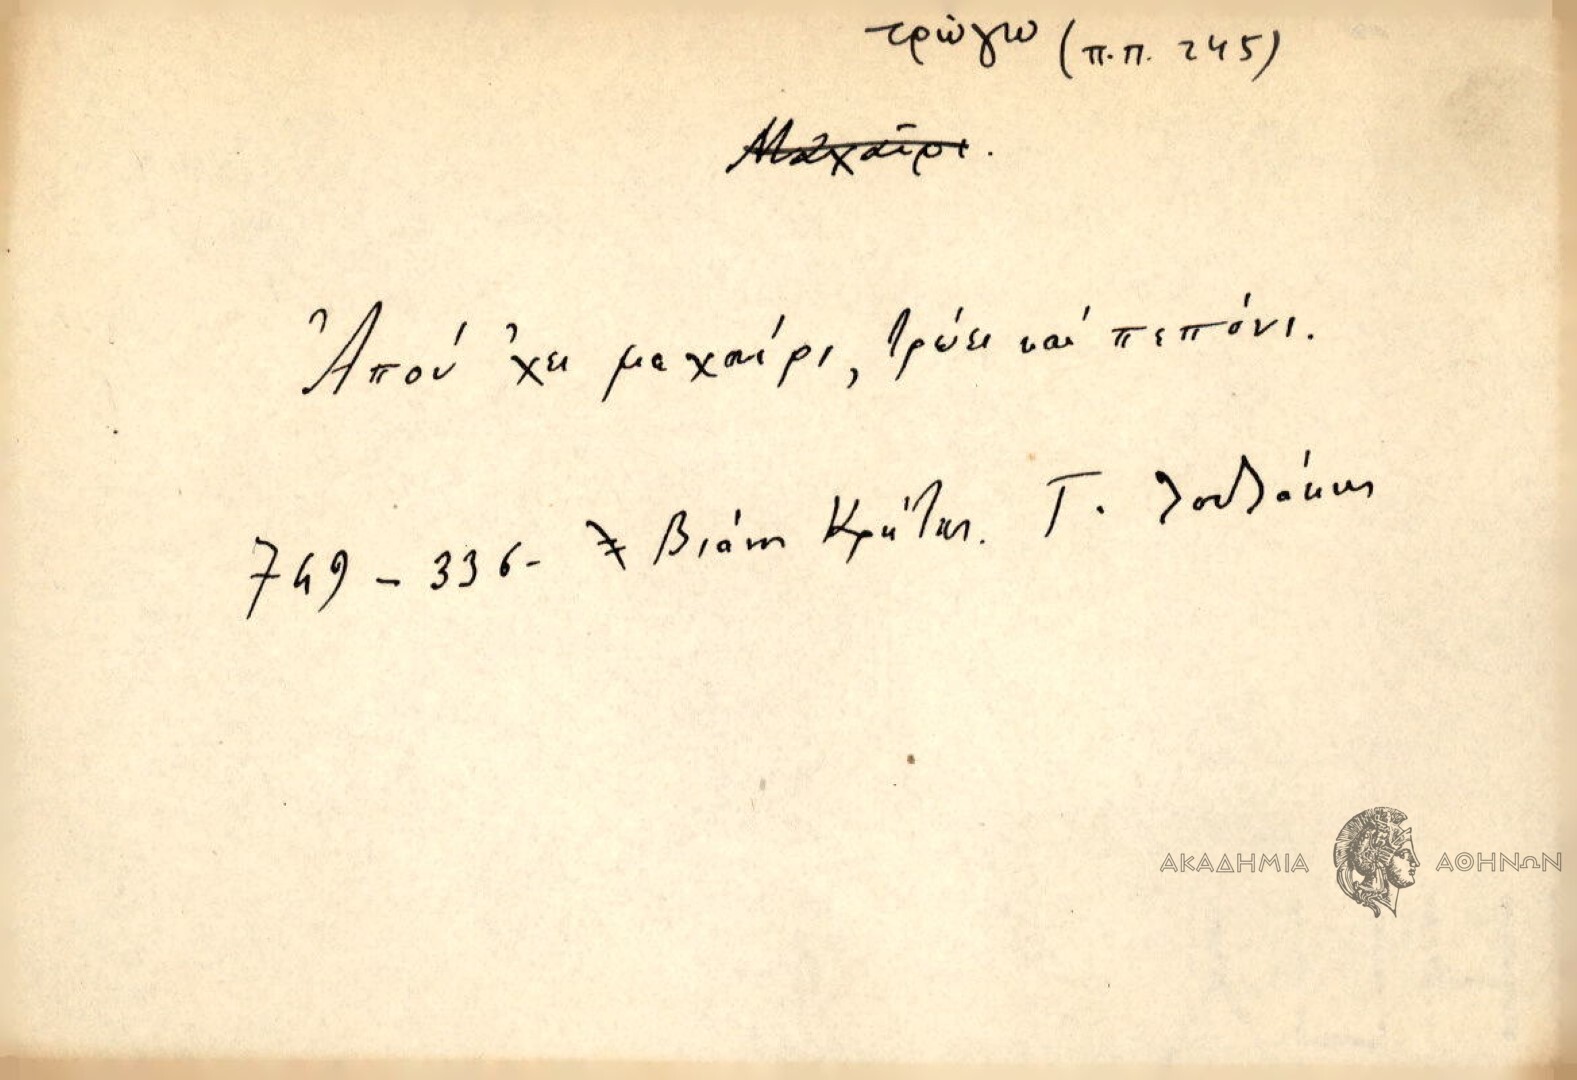 τρώγω (π.π. 245)
Μαχαίρι.
Ἀπού 'χει μαχαίρι, τρώει καί πεπόνι.
749 - 336 - Βιάνη Κρήτης. Γ.
ΑΚΑΔΗΜΙΑ ΑΘΗΝΩΝ